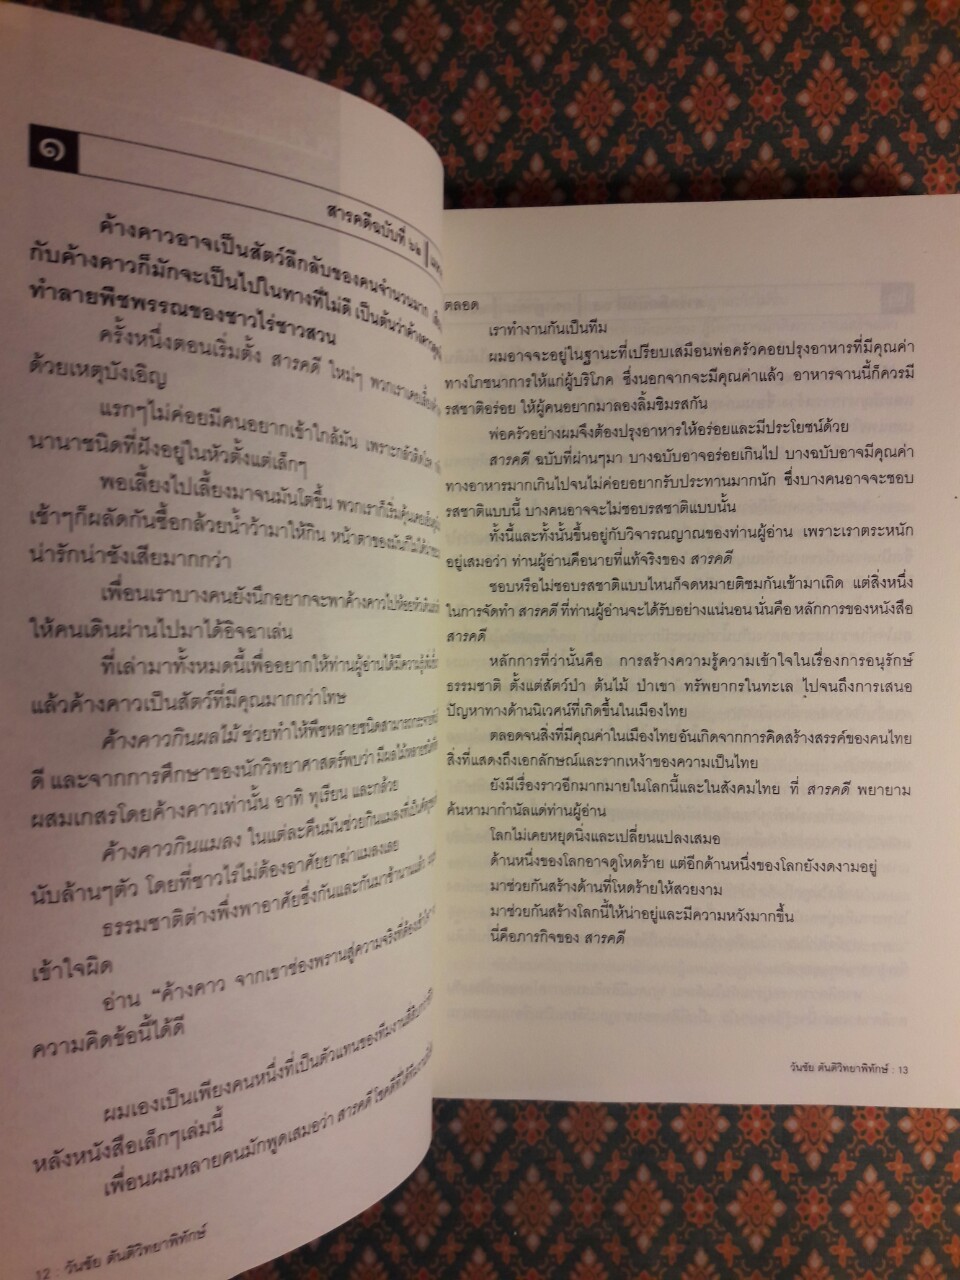 ๑
สารคดีฉบับที่ ๖๒
ค้างคาวอาจเป็นสัตว์ลึกลับของคนจำนวนมาก
กับค้างคาวก็มักจะเป็นไปในทางที่ไม่ดี เป็นต้นว่าค้างคาว
ทำลายพืชพรรณของชาวไร่ชาวสวน
ครั้งหนึ่งตอนเริ่มตั้ง สารคดี ใหม่ๆ พวกเราเคยเลี้ยงค้าง
ด้วยเหตุบังเอิญ
แรกๆไม่ค่อยมีคนอยากเข้าใกล้มัน เพราะกลัวติดโรค
นานาชนิดที่ฝังอยู่ในหัวตั้งแต่เล็กๆ
พอเลี้ยงไปเลี้ยงมาจนมันโตขึ้น พวกเราก็เริ่มคุ้นเคย
เช้าๆก็ผลัดกันซื้อกล้วยน้ำว้ามาให้กิน หน้าตาของมันก็ไม่ได้
น่ารักน่าชังเสียมากกว่า
เพื่อนเราบางคนยังนึกอยากจะพาค้างคาวไปห้อยหัว
ให้คนเดินผ่านไปมาได้อิจฉาเล่น
ที่เล่ามาทั้งหมดนี้เพื่ออยากให้ท่านผู้อ่านได้มีความรู้
แล้วค้างคาวเป็นสัตว์ที่มีคุณมากกว่าโทษ
ค้างคาวกินผลไม้ ช่วยทำให้พืชหลายชนิดสามารถ
ดี และจากการศึกษาของนักวิทยาศาสตร์พบว่า มีผลไม้หลายชนิด
ผสมเกสรโดยค้างคาวเท่านั้น อาทิ ทุเรียน และกล้วย
ค้างคาวกินแมลง ในแต่ละคืนมันช่วยกินแมลงที่เป็นศัตรู
นับล้านๆตัว โดยที่ชาวไร่ไม่ต้องอาศัยยาฆ่าแมลงเลย
ธรรมชาติต่างพึ่งพาอาศัยซึ่งกันและกันมาช้านานแล้ว
เข้าใจผิด
อ่าน "ค้างคาว จากเขาช่องพรานสู่ความจริงที่ต้องเข้าใจ
ความคิดข้อนี้ได้ดี
ผมเองเป็นเพียงคนหนึ่งที่เป็นตัวแทนของทีมงาน
หลังหนังสือเล็กๆเล่มนี้
เพื่อนผมหลายคนมักพูดเสมอว่า สารคดี โชคดีที่ได้
12 : วันชัย ตันติวิทยาพิทักษ์
ตลอด
เราทำงานกันเป็นทีม
ผมอาจจะอยู่ในฐานะที่เปรียบเสมือนพ่อครัวคอยปรุงอาหารที่มีคุณค่า
ทางโภชนาการให้แก่ผู้บริโภค ซึ่งนอกจากจะมีคุณค่าแล้ว อาหารจานนี้ก็ควรมี
รสชาติอร่อย ให้ผู้คนอยากมาลองลิ้มชิมรสกัน
พ่อครัวอย่างผมจึงต้องปรุงอาหารให้อร่อยและมีประโยชน์ด้วย
สารคดี ฉบับที่ผ่านๆมา บางฉบับอาจอร่อยเกินไป บางฉบับอาจมีคุณค่า
ทางอาหารมากเกินไปจนไม่ค่อยอยากรับประทานมากนัก ซึ่งบางคนอาจจะชอบ
รสชาติแบบนี้ บางคนอาจจะไม่ชอบรสชาติแบบนั้น
ทั้งนี้และทั้งนั้นขึ้นอยู่กับวิจารณญาณของท่านผู้อ่าน เพราะเราตระหนัก
อยู่เสมอว่า ท่านผู้อ่านคือนายที่แท้จริงของ สารคดี
ชอบหรือไม่ชอบรสชาติแบบไหนก็จดหมายติชมกันเข้ามาเถิด แต่สิ่งหนึ่ง
ในการจัดทำ สารคดี ที่ท่านผู้อ่านจะได้รับอย่างแน่นอน นั่นคือ หลักการของหนังสือ
สารคดี
หลักการที่ว่านั้นคือ การสร้างความรู้ความเข้าใจในเรื่องการอนุรักษ์
ธรรมชาติ ตั้งแต่สัตว์ป่า ต้นไม้ ป่าเขา ทรัพยากรในทะเล ไปจนถึงการเสนอ
ปัญหาทางด้านนิเวศน์ที่เกิดขึ้นในเมืองไทย
ตลอดจนสิ่งที่มีคุณค่าในเมืองไทยอันเกิดจากการคิดสร้างสรรค์ของคนไทย
สิ่งที่แสดงถึงเอกลักษณ์และรากเหง้าของความเป็นไทย
ยังมีเรื่องราวอีกมากมายในโลกนี้และในสังคมไทย ที่ สารคดี พยายาม
ค้นหามากำนัลแด่ท่านผู้อ่าน
โลกไม่เคยหยุดนิ่งและเปลี่ยนแปลงเสมอ
ด้านหนึ่งของโลกอาจดูโหดร้าย แต่อีกด้านหนึ่งของโลกยังงดงามอยู่
มาช่วยกันสร้างด้านที่โหดร้ายให้สวยงาม
มาช่วยกันสร้างโลกนี้ให้น่าอยู่และมีความหวังมากขึ้น
นี่คือภารกิจของ สารคดี
วันชัย ตันติวิทยาพิทักษ์ : 13